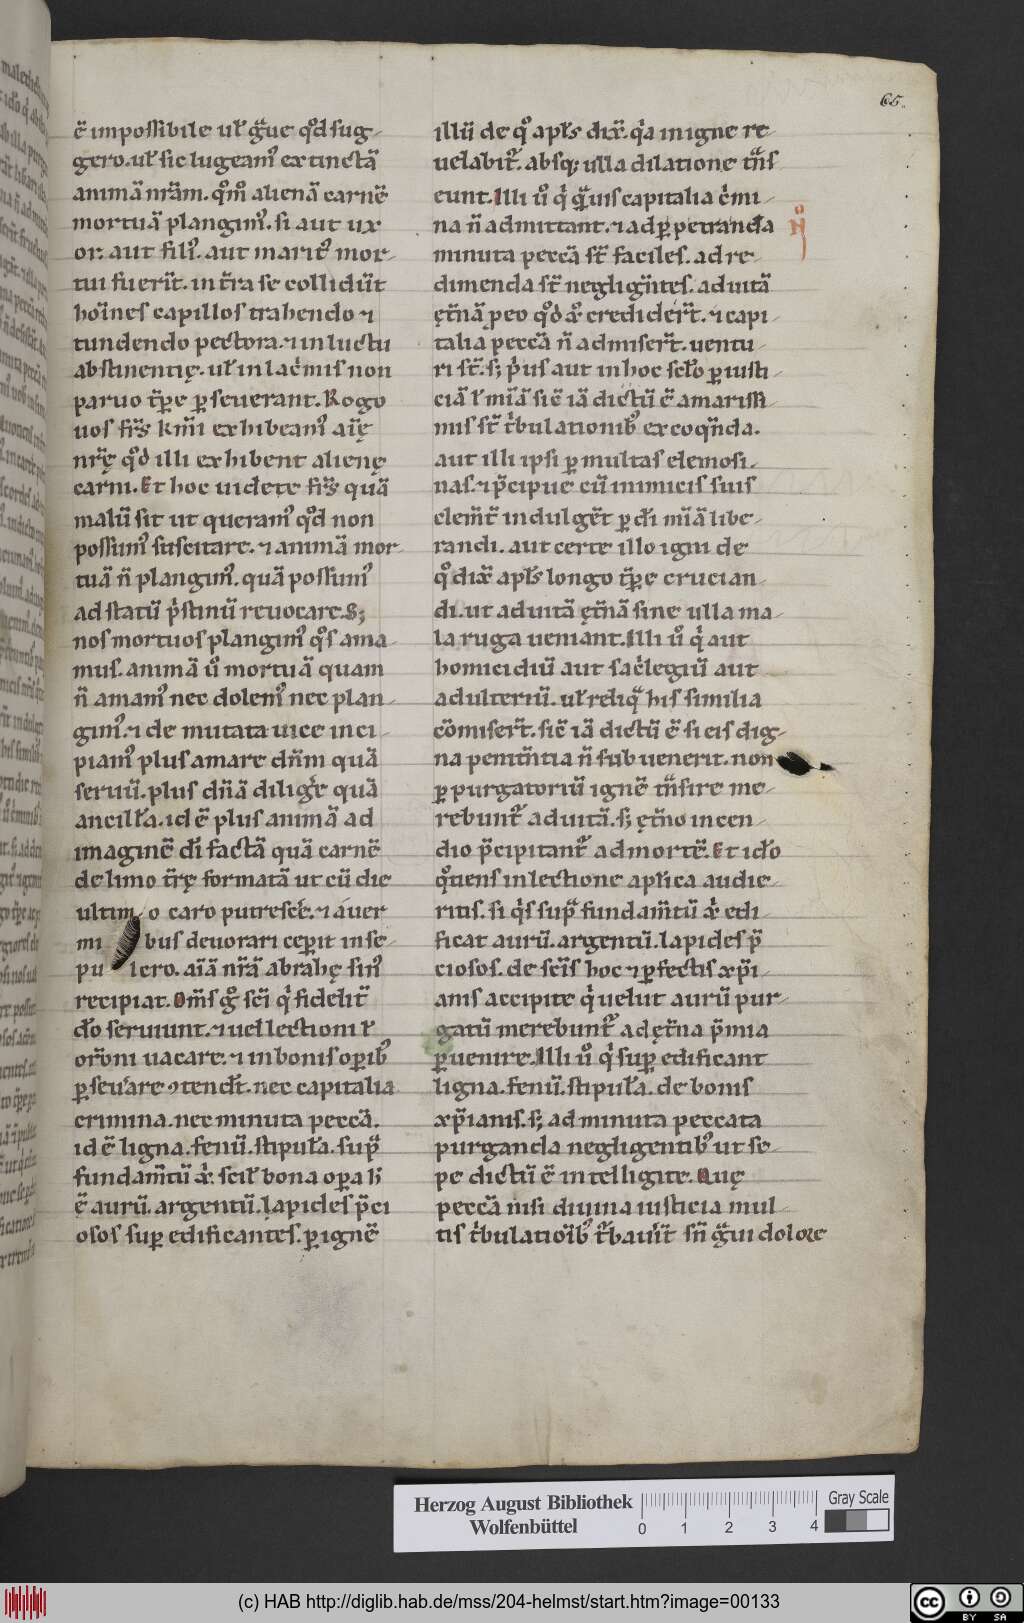 65.
ē impossibile ul̄ gͣue qd̄ sug-
gero. ul̄ sic lugeam᷒ extinctā
animā nr̄am. qͦmͦ alienā carnē
mortuā plangim᷒. si aut ux
or. aut fili᷒. aut marit᷒ mor-
tui fuerīt. in t̄ra se collidūt
hoīnes capillos trahendo ⁊
tundendo pectora. ⁊ in luctu
abstinentię. ul̄ in lac̄mis non
paruo t̄pr̄e ꝑseuerant. Rogo
uos fr̄s km̄i exhibeam᷒ aīę
nr̄ę qd̄ illi exhibent alienę
carni. Et hoc uidete fr̄s quā
malū sit ut queram᷒ qd̄ non
possum᷒ suscitare. ⁊ animā mor-
tuā n̄ plangim᷒. quā possum᷒
ad statū pͥstinū reuocare. S;
nos mortuos plangim᷒ qͦs ama-
mus. animā uͦ mortuā quam
n̄ amam᷒ nec dolem᷒ nec plan-
gim᷒. ⁊ de mutata uice inci-
piam᷒ plus amare dn̄m quā
seruū. plus dn̄ā diligere quā
ancillā. id ē plus animā ad
imaginē dī factā quā carnē
de limo t̄rę formatā ut cū die
ultimo caro putrescere. ⁊ a uer
mi bus deuorari ceperit in se-
pu lcro. aīā nr̄ā abrahę sin᷒
recipiat. Om̄s gͦ sc̄i qͥ fidelit̄
dō seruiunt. ⁊ uel lectioni l̄
or̄oni uacare. ⁊ in bonis oꝑib᷒
ꝑseuare ꝯtendt̄. nec capitalia
crimina. nec minuta peccā.
id ē ligna. fenū. stipulā. sup̄
fundam̄tū xͥ. scil̄ bona oꝑa h̄
ē aurū. argentū. lapides p̄ci
osos suꝑ edificantes. ꝑ ignē
illū de qͦ apl̄s dix̄. qͥa in igne re-
uelabit᷑. absq; ulla dilatione tͣns
eunt. Illi uͦ qͥ qͣuis capitalia cͥmi-
na n̄ admittant. ⁊ ad ꝑpetranda
minuta peccā st̄ faciles. ad re-
dimenda st̄ neglign̄tes. ad uitā
ęt̄nā ꝑeo qd̄ xͦ crediderīt. ⁊ capi-
talia peccā n̄ admiserīt. uentu-
ri st̄. s; pͥus aut in hoc sclō ꝑ iusti-
ciā l̄ mīā sic̄ iā dictū ē amarissi
mis st̄ tͥbulationib᷒ excoqͣnda.
aut illi ipsi ꝑ multas elemosi-
nas. ⁊ p̄cipue cū inimicis suis
clem̄t̄ indulgēt ꝑ dī mīā libe-
randi. aut certe illo igni de
qͦ dix̄ apl̄s longo t̄pr̄e crucian-
di. ut ad uitā ęt̄nā sine ulla ma-
la ruga ueniant. Illi uͦ qͥ aut
homicidiū aut sac̄legiū aut
adulteriū. ul̄ reliqͣ his similia
cōmiserīt. sic̄ iā dictū ē si eis dig-
na penitn̄tia n̄ subuenerit. non
ꝑ purgatoriū ignē tͣnsire me-
rebunt᷑ ad uitā. s; ęt̄no incen-
dio p̄cipitant᷑ ad mortē. Et idō
qͦtiens in lectione apl̄ica audie-
ritis. si qͥs supͣ fundam̄tū xͥ edi-
ficat aurū. argentū. lapides p̄
ciosos. de sc̄is hoc ⁊ ꝑfectis xp̄i-
anis accipite qͥ uelut aurū pur-
gatū merebunt᷑ ad ęt̄na p̄mia
ꝑuenire. Illi uͦ qͥ suꝑ edificant
ligna. fenū. stipulā. de bonis
xp̄ianis. s; ad minuta peccata
purganda negligentib᷒ ut se-
pe dictū ē intelligite. Quę
peccā nisi diuina iusticia mul-
tis tͥbulatiōib᷒ tͥbauīt sn̄ gͣui dolore
N̊
Herzog August Bibliothek
Wolfenbüttel
0 1 2 3 4
Gray Scale
(c) HAB http://diglib.hab.de/mss/204-helmst/start.htm?image=00133
cc BY SA